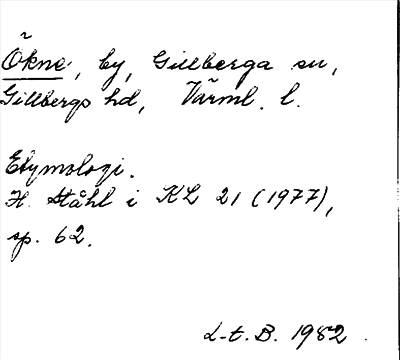 Ökne, by, Gillberga sn,
Gillbergs hd, Värml. l.
Etymologi.
H. Ståhl i KL 21 (1977),
sp. 62.
L-t. B. 1982.